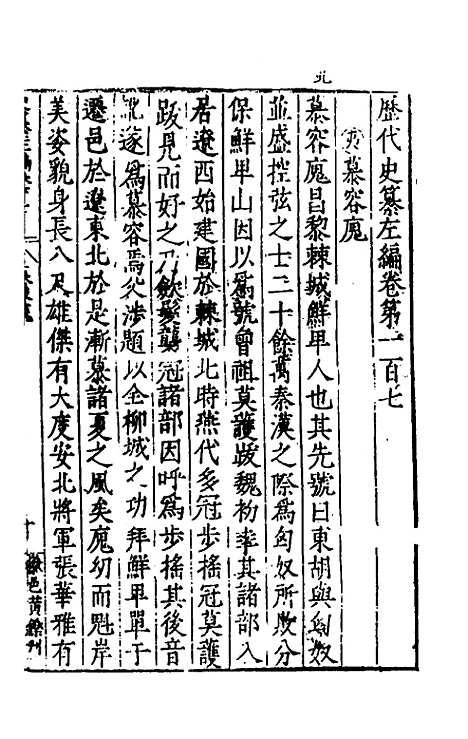 歷代史纂左編卷第一百七
慕容廆
慕容廆昌黎棘城鮮卑人也其先號曰東胡與匈奴
並盛控弦之士二十餘萬秦漢之際為匈奴所敗分
保鮮卑山因以為號曾祖莫護跋魏初率其諸部入
居遼西始建國於棘城北時燕代多冠步搖冠莫護
跋見而好之乃歛髮襲冠諸部因呼為步搖其後音
訛遂為慕容焉父涉題以全柳城之功拜鮮卑單于
遷邑於遼東北於是漸慕諸夏之風矣廆幼而魁岸
美姿貌身長八尺雄傑有大度安北將軍張華雅有
邑黃鋑刊